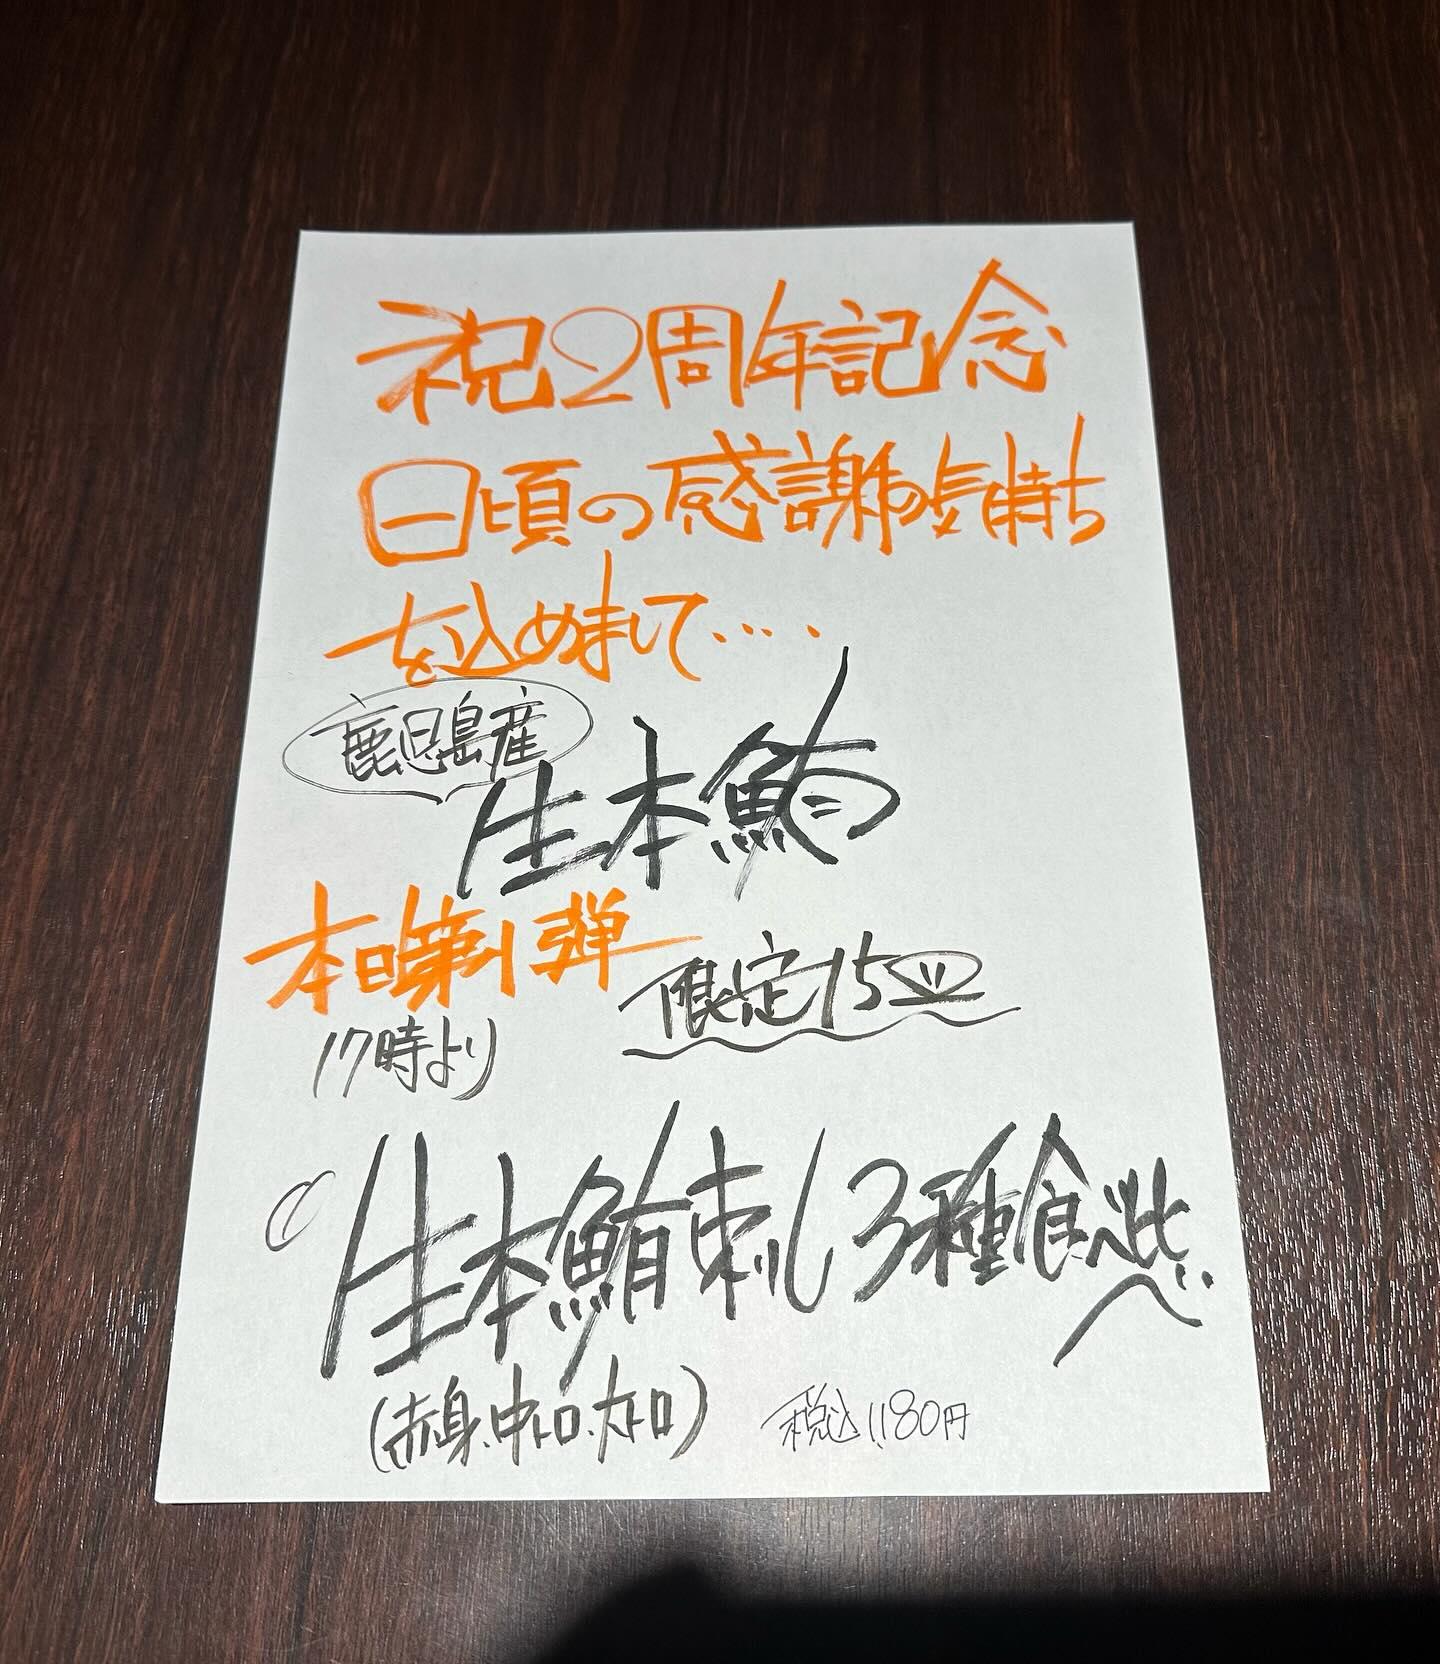 祝2周年記念
日頃の感謝の気持ち
を込めまして‥‥
鹿児島産
生本鮪
本日第1弾
限定15皿
17時より
生本鮪刺し3種食べ比べ
(赤身、中トロ、大トロ)
税込1,180円